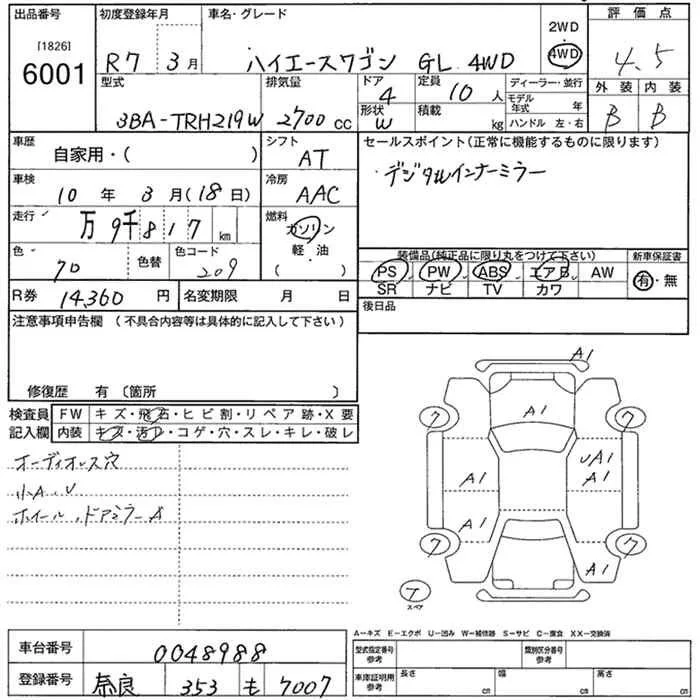 出品番号 初度登録年月 車名・グレード 評価点
[1826]
6001
R7 3月 ハイエースワゴン GL 4WD
2WD
4WD
4.5
型式 排気量 ドア 定員 ディーラー・並行 外装 内装
3BA-TRH219W 2700 cc 4 10 人
モデル年式 年
形状 積載 ハンドル 左・右
W kg
B B
車歴 シフト セールスポイント(正常に機能するものに限ります)
自家用・( ) AT
デジタルインナーミラー
車検 冷房
10年 3月(18日) AAC
走行 燃料
万 9千 8 1 7 km
ガソリン
軽・油
( )
色 色替 色コード
70 209
装備品(純正品に限り丸をつけて下さい) 新車保証書
PS PW ABS エアB AW 有・無
SR ナビ TV カワ
R券 14,360 円 名変期限 月 日
後日品
注意事項申告欄 (不具合内容等は具体的に記入して下さい)
修復歴 有 〔箇所 〕
検査員 FW キズ・飛石・ヒビ割・リペア跡・X要
記入欄 内装 キズ・汚レ・コゲ・穴・スレ・キレ・破レ
オーディオレス穴
小A、U
ホイール、ドアミラーA
A1
A1
7 7
UA1
A1 A1
A1
7 7
A1
T
スペア
A−キズ E−エクボ U−凹み W−補修跡 S−サビ C−腐食 XX−交換済
車台番号 0048988
型式指定番号 参考 類別区分番号 参考
登録番号 奈良 353 も 7007
車庫証明用 参考 長さ cm 幅 cm 高さ cm